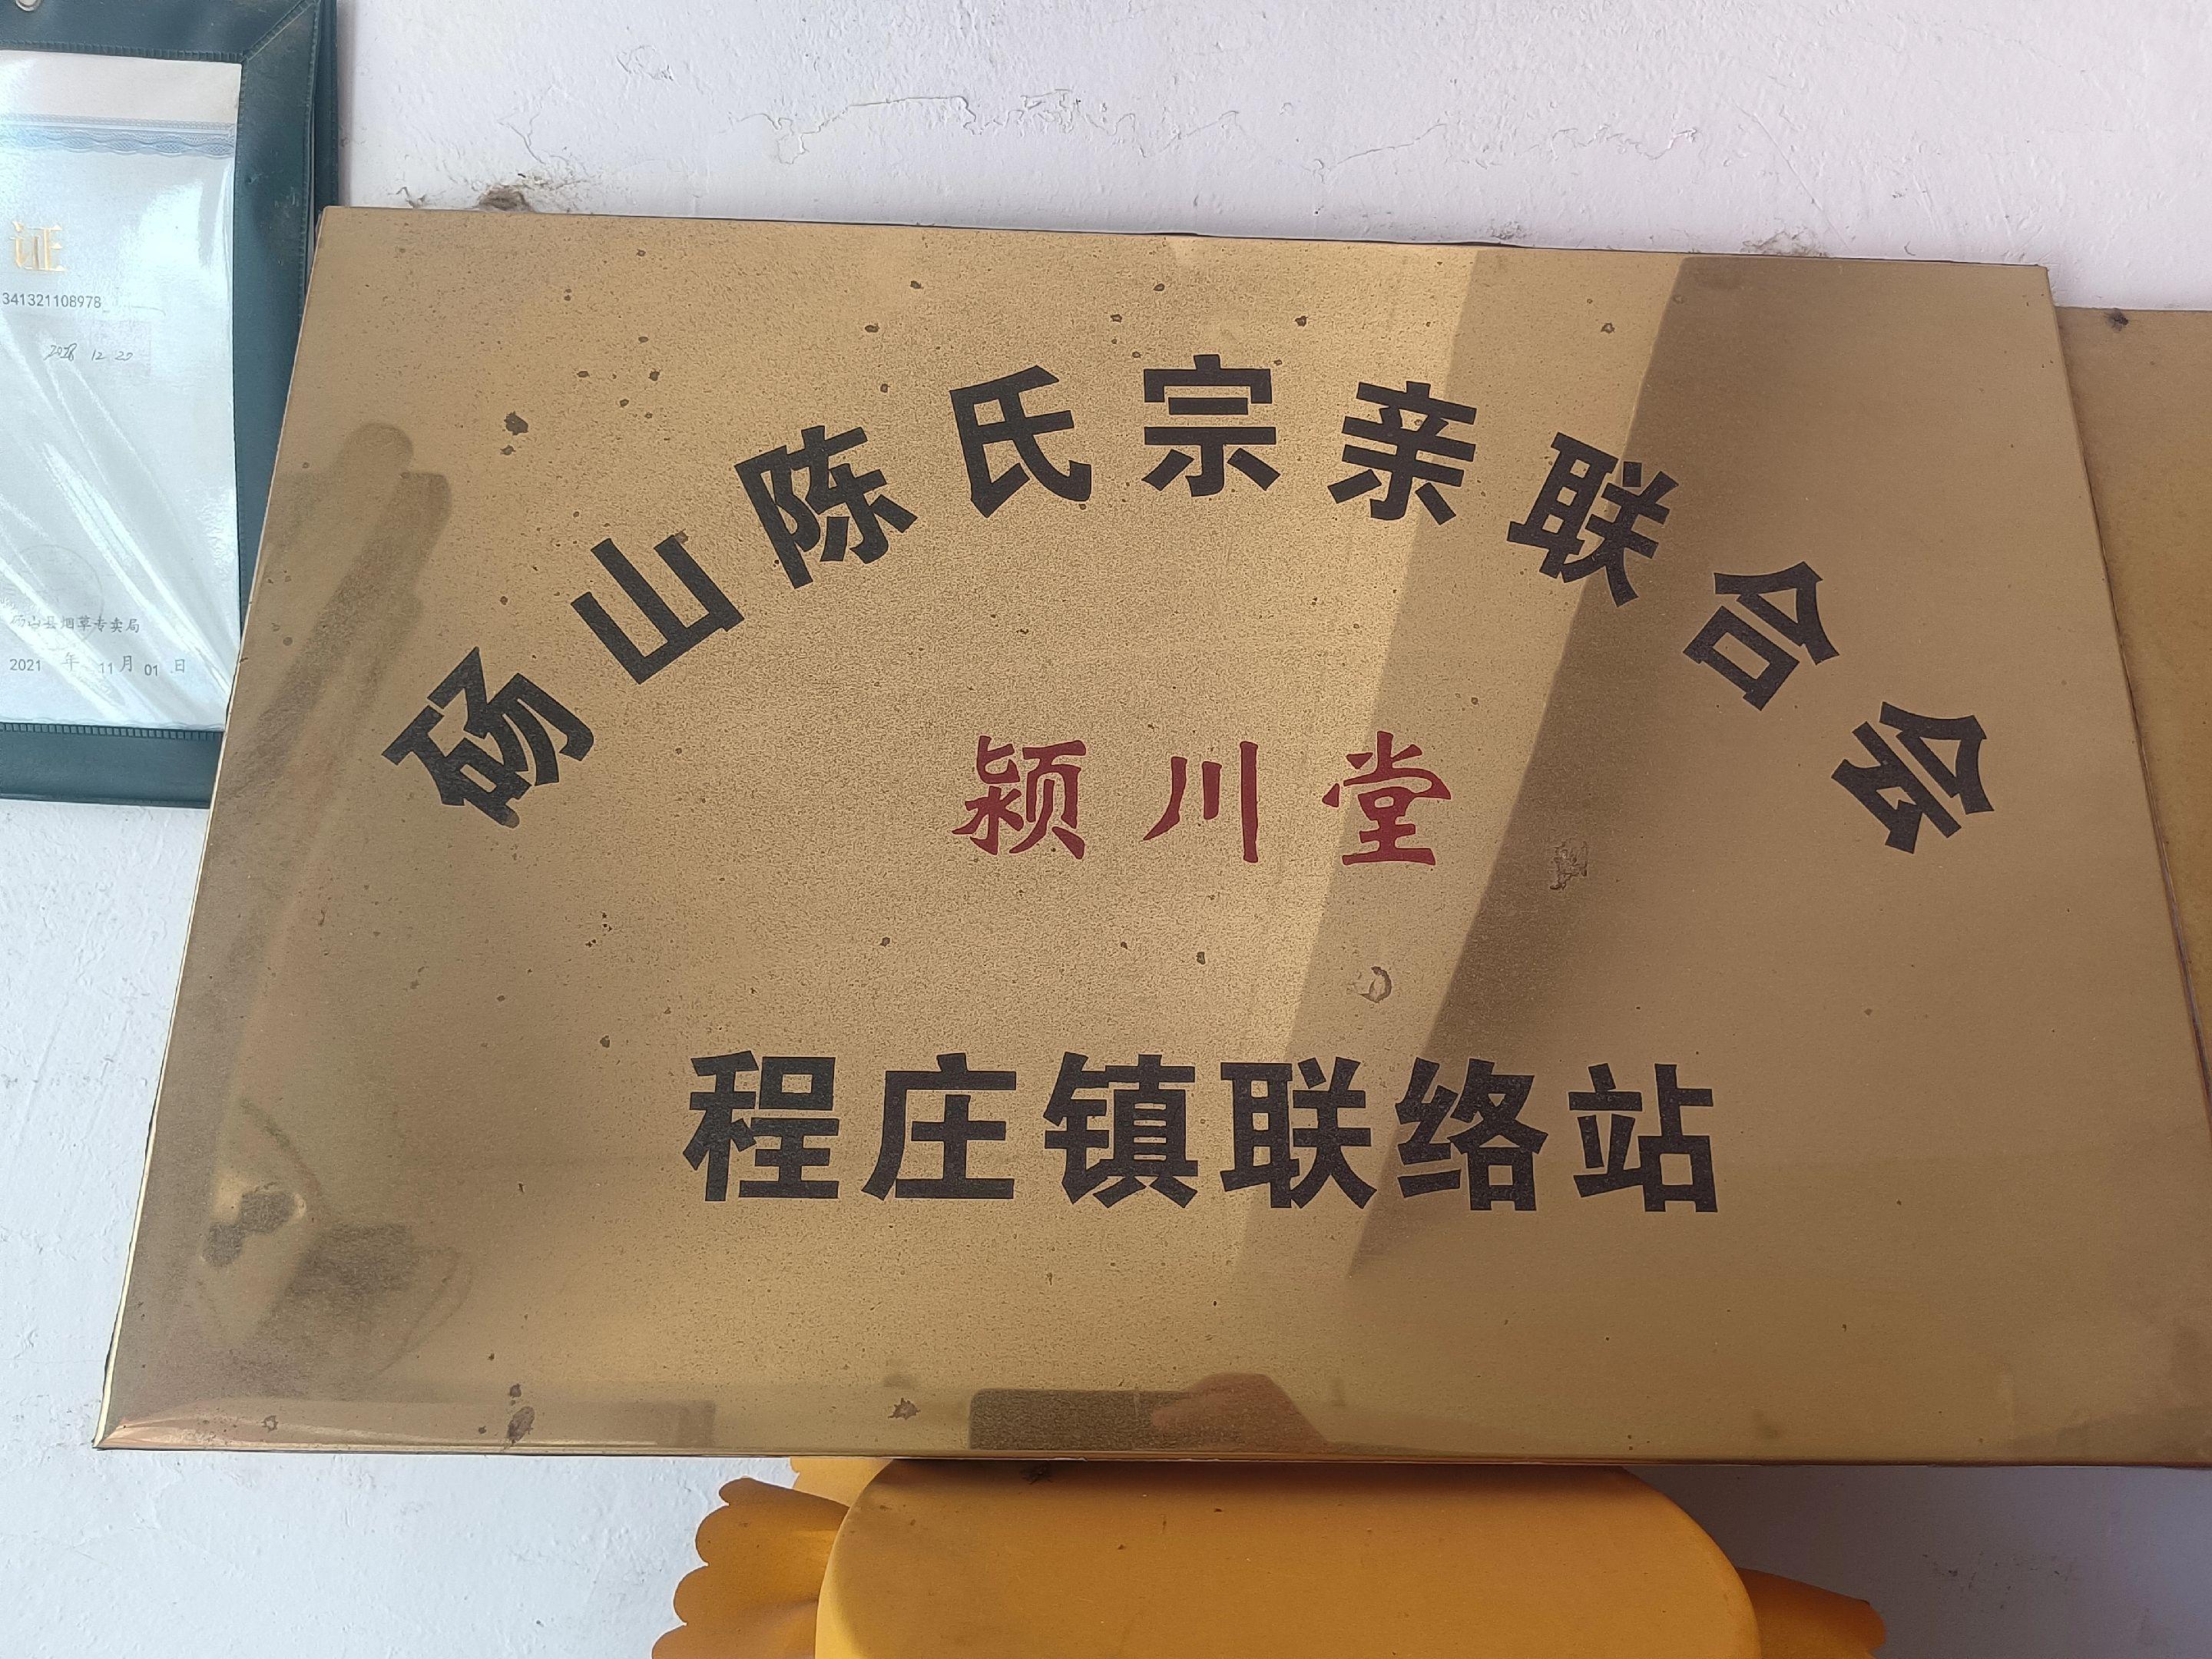 证
341321108978
砀山县烟草专卖局
2021 年 11 月 01 日
砀山陈氏宗亲联合会
颍川堂
程庄镇联络站